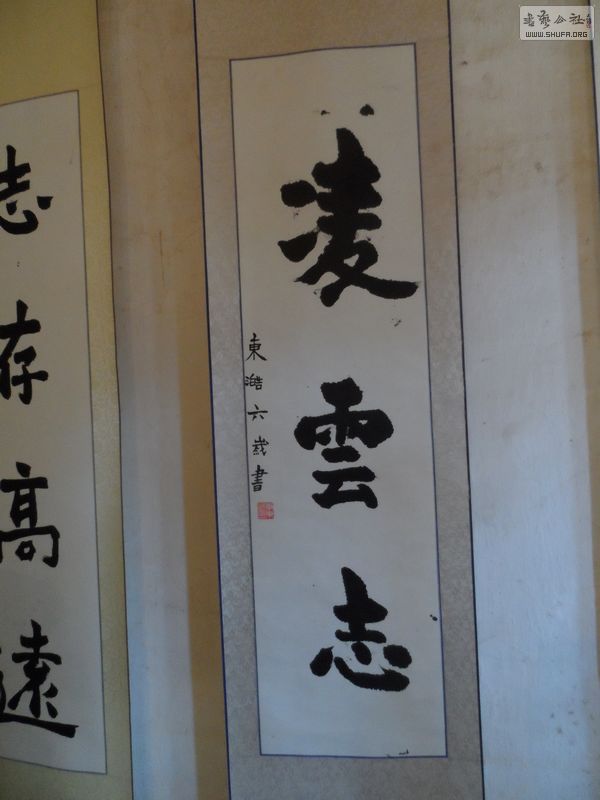 凌雲志
東澔六歲書
志存高遠
書藝公社
WWW.SHUFA.ORG